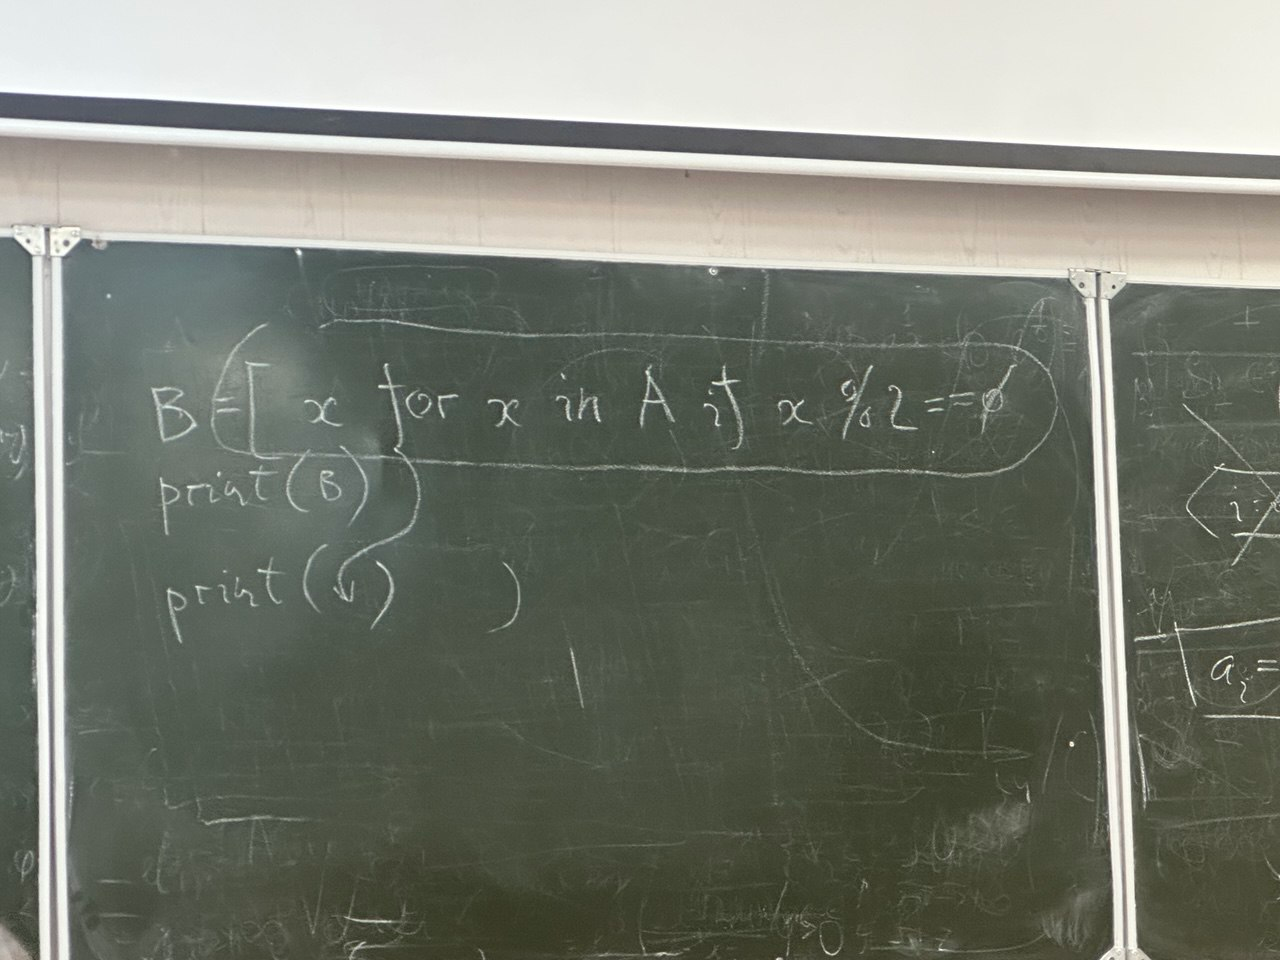 B = [ x for x in A if x % 2 == 0
print(B)
print( )
i =
a_i =